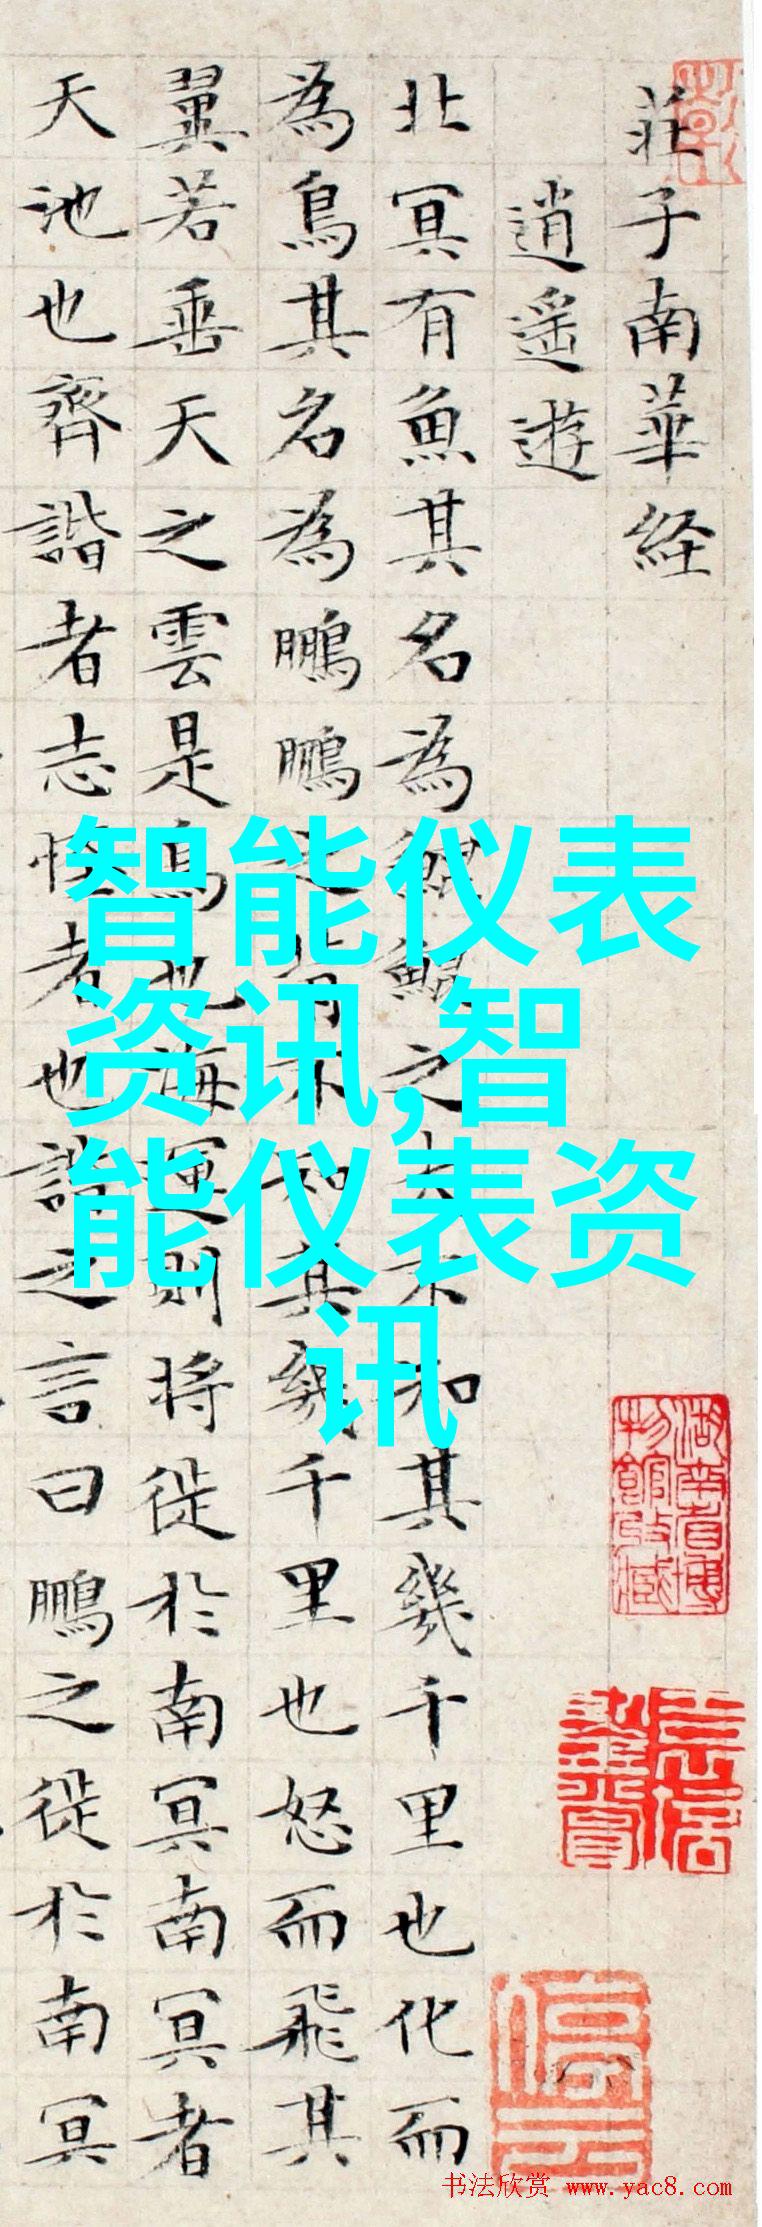 莊子南華経
逍遙遊
北冥有魚其名為鯤鯤之大不知其幾千里也化而
為鳥其名為鵬鵬之背不知其幾千里也怒而飛其
翼若垂天之雲是鳥也海運則將徙於南冥南冥者
天池也齊諧者志怪者也諧之言曰鵬之徙於南冥
智能仪表
资讯,智
能仪表资
讯
湖南省博
物館收藏
书法欣赏 www.yac8.com